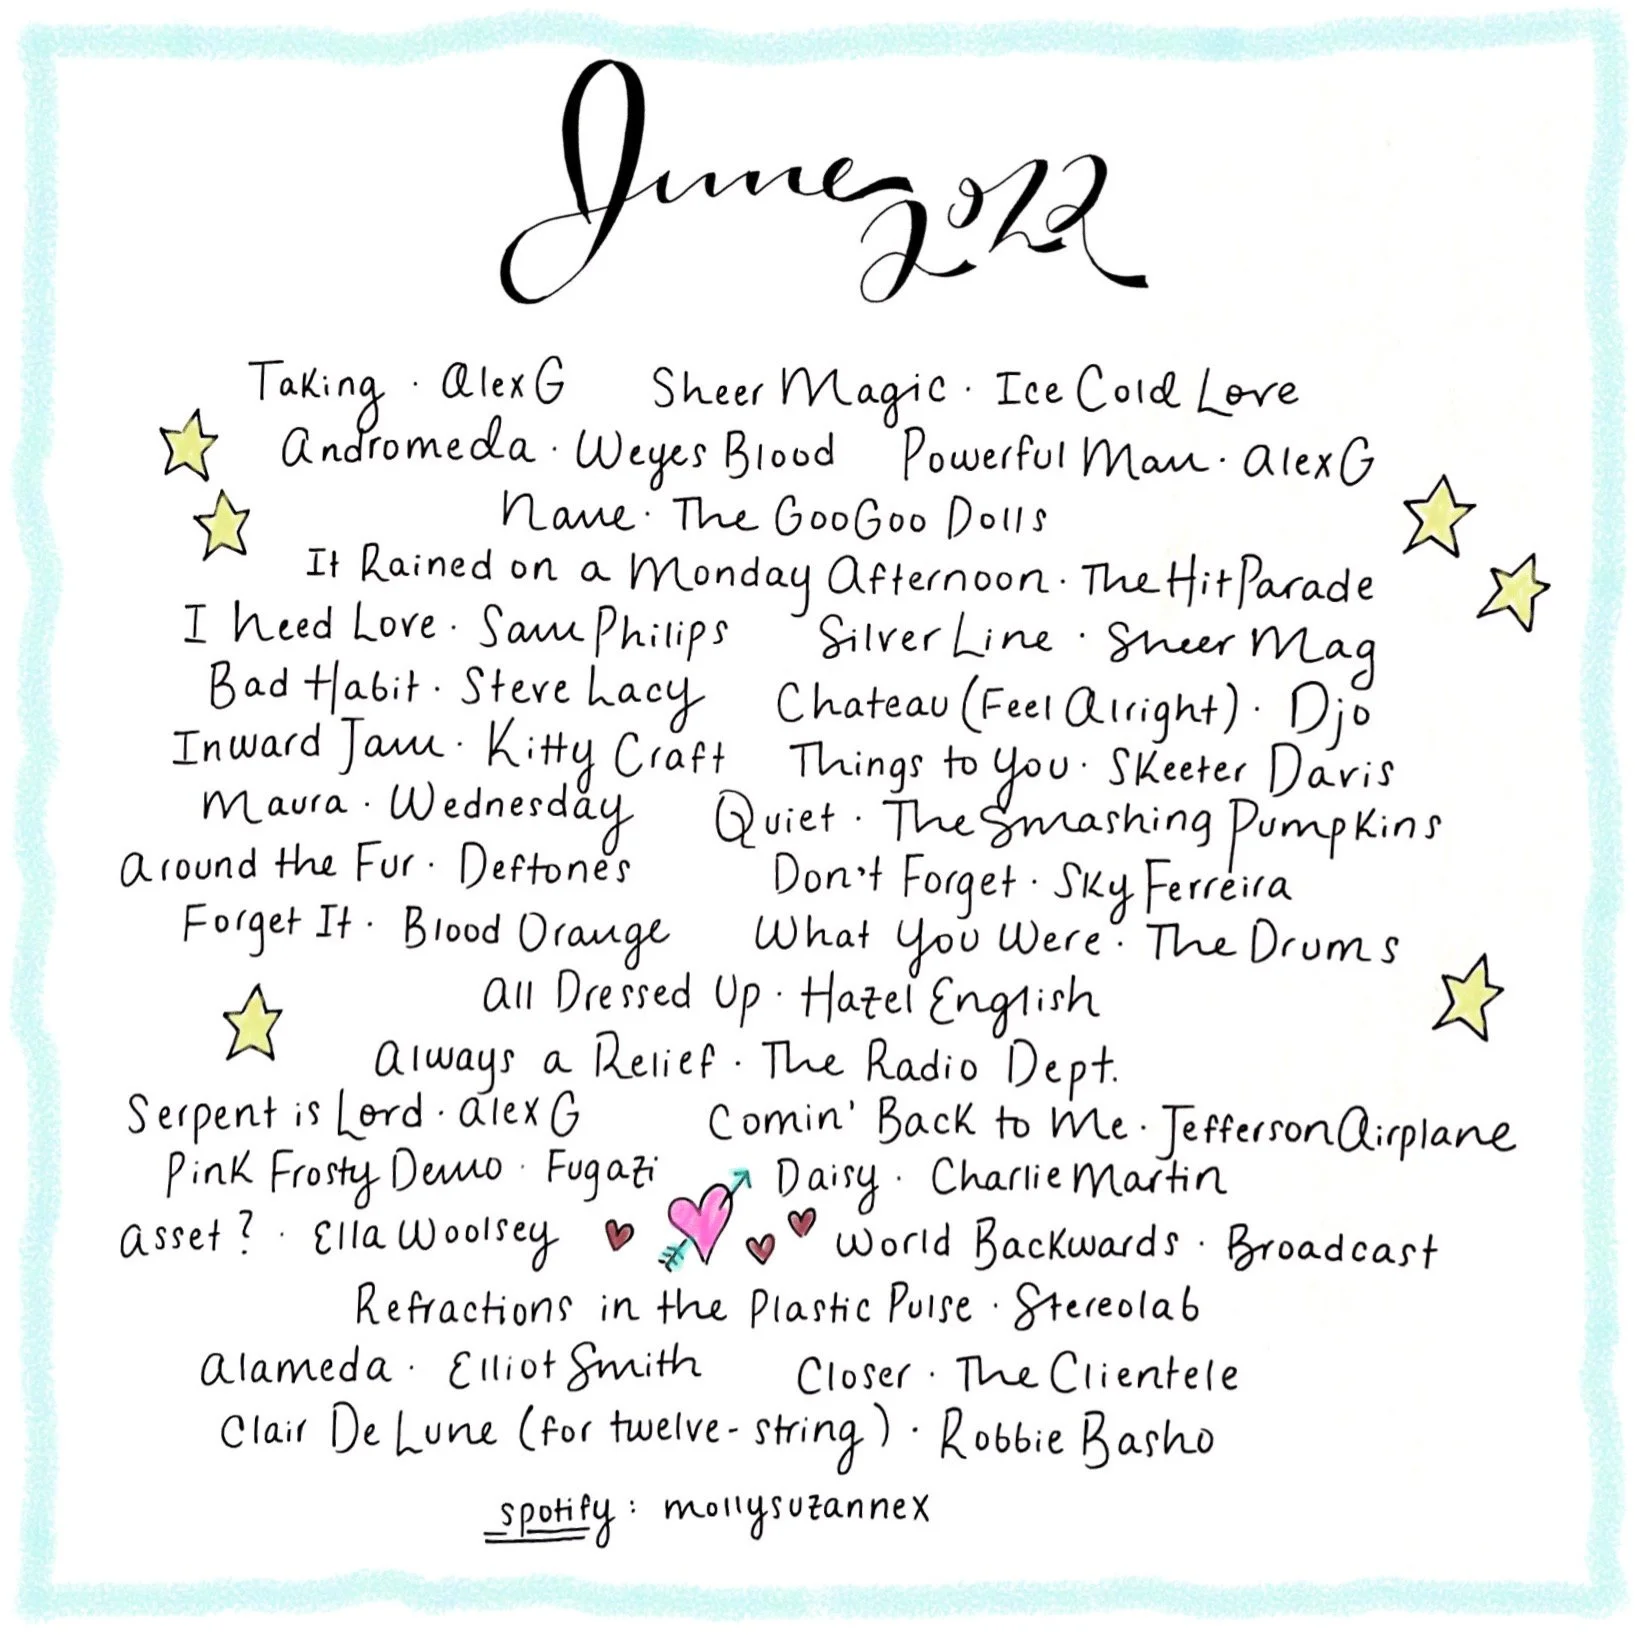 June 2022
Taking · Alex G Sheer Magic · Ice Cold Love
Andromeda · Weyes Blood Powerful Man · Alex G
Name · The Goo Goo Dolls
It Rained on a Monday Afternoon · The Hit Parade
I Need Love · Sam Philips Silver Line · Sheer Mag
Bad Habit · Steve Lacy Chateau (Feel Alright) · Djo
Inward Jam · Kitty Craft Things to You · Skeeter Davis
Maura · Wednesday Quiet · The Smashing Pumpkins
Around the Fur · Deftones Don't Forget · Sky Ferreira
Forget It · Blood Orange What You Were · The Drums
All Dressed Up · Hazel English
Always a Relief · The Radio Dept.
Serpent is Lord · Alex G Comin' Back to Me · Jefferson Airplane
Pink Frosty Demo · Fugazi Daisy · Charlie Martin
Asset? · Ella Woolsey World Backwards · Broadcast
Refractions in the Plastic Pulse · Stereolab
Alameda · Elliot Smith Closer · The Clientele
Clair De Lune (for twelve-string) · Robbie Basho
spotify: mollysuzannex